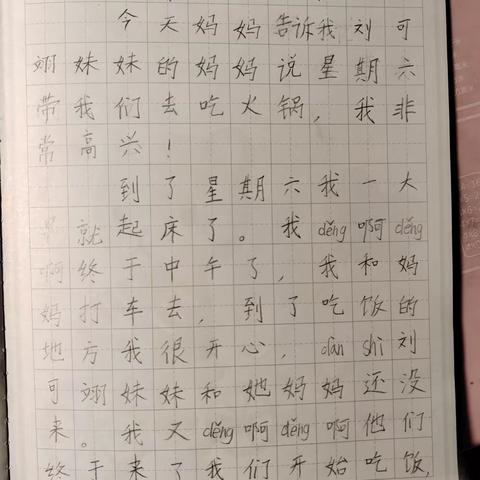 今天妈妈告诉我刘可
翊妹妹的妈妈说星期六
带我们去吃火锅，我非
常高兴！
到了星期六我一大
早就起床了。我děng啊děng
啊终于中午了，我和妈
妈打车去，到了吃饭的
地方我很开心，dàn shì刘
可翊妹妹和她妈妈还没
来。我又děng啊děng啊他们
终于来了我们开始吃饭，